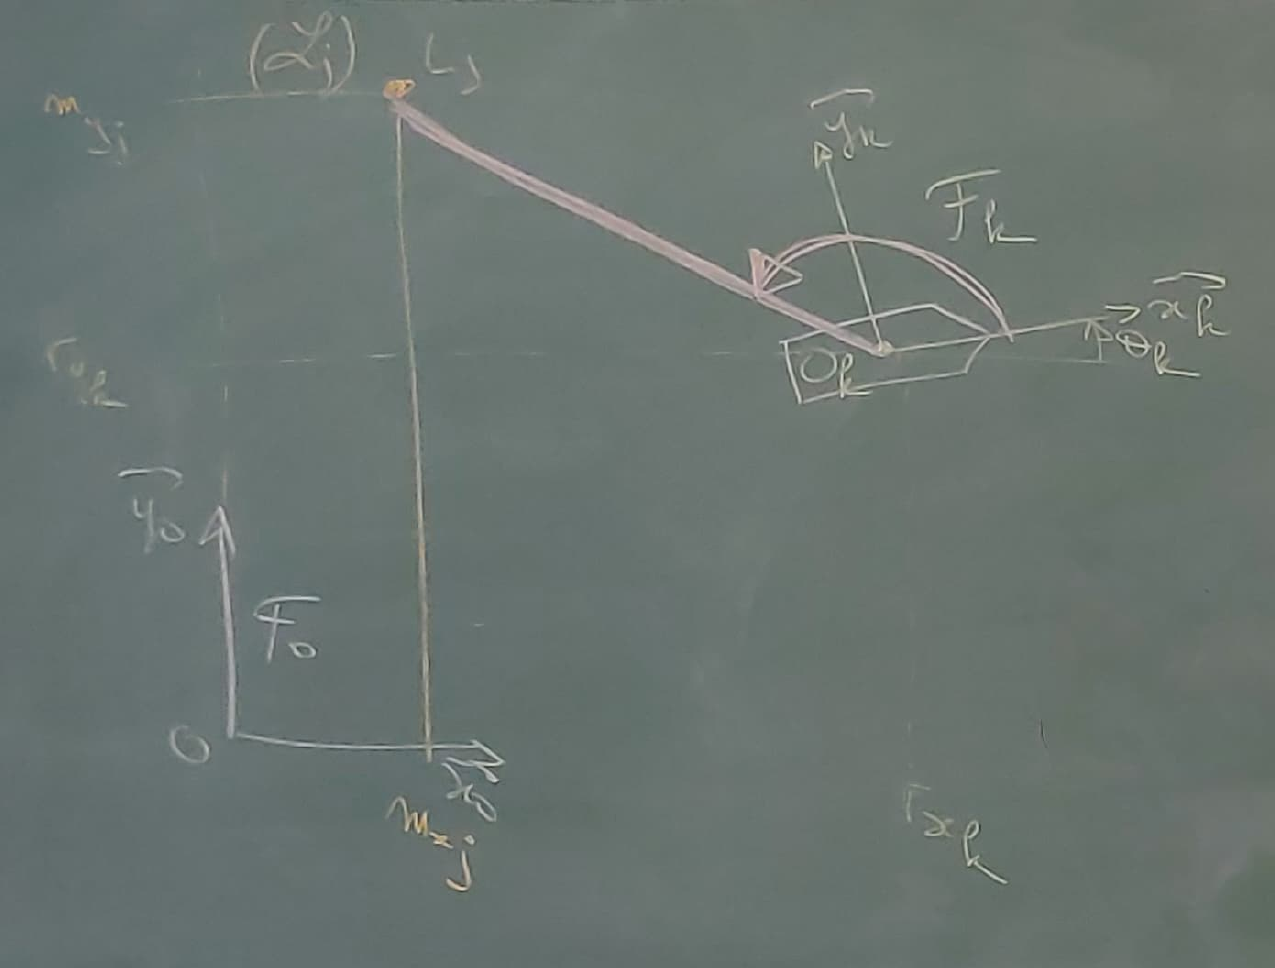 (ℒj) Lj
m yj
yk
Fk
xk
θk
r yk
Ok
y0
F0
O
x0
m xj
r xk